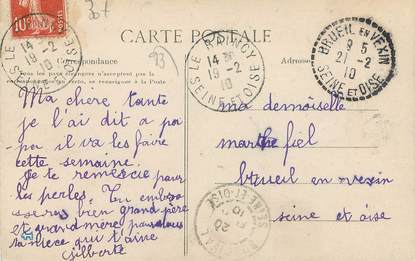 10
30f
CARTE POSTALE
Correspondance
Adresse
Tous les pays étrangers n'acceptent pas la
correspondance au recto, se renseigner à la Poste
93
LE RAINCY
14
19-2
10
SEINE-ET-OISE
LE RAINCY
14
19-2
10
SEINE-ET-OISE
BRUEIL EN VEXIN
9 5
21-2
10
SEINE ET OISE
Ma chere tante
je l'ai dit a pa
pa il va les faire
cette semaine.
Je te remercie pour
les perles. Tu embras
seras bien grand père
et grand mère pour nous
ta niece qui t'aime
gilberte
ma demoiselle
marthe fiel
brueil en vexin
seine et oise
20
10
SEINE-ET-OISE